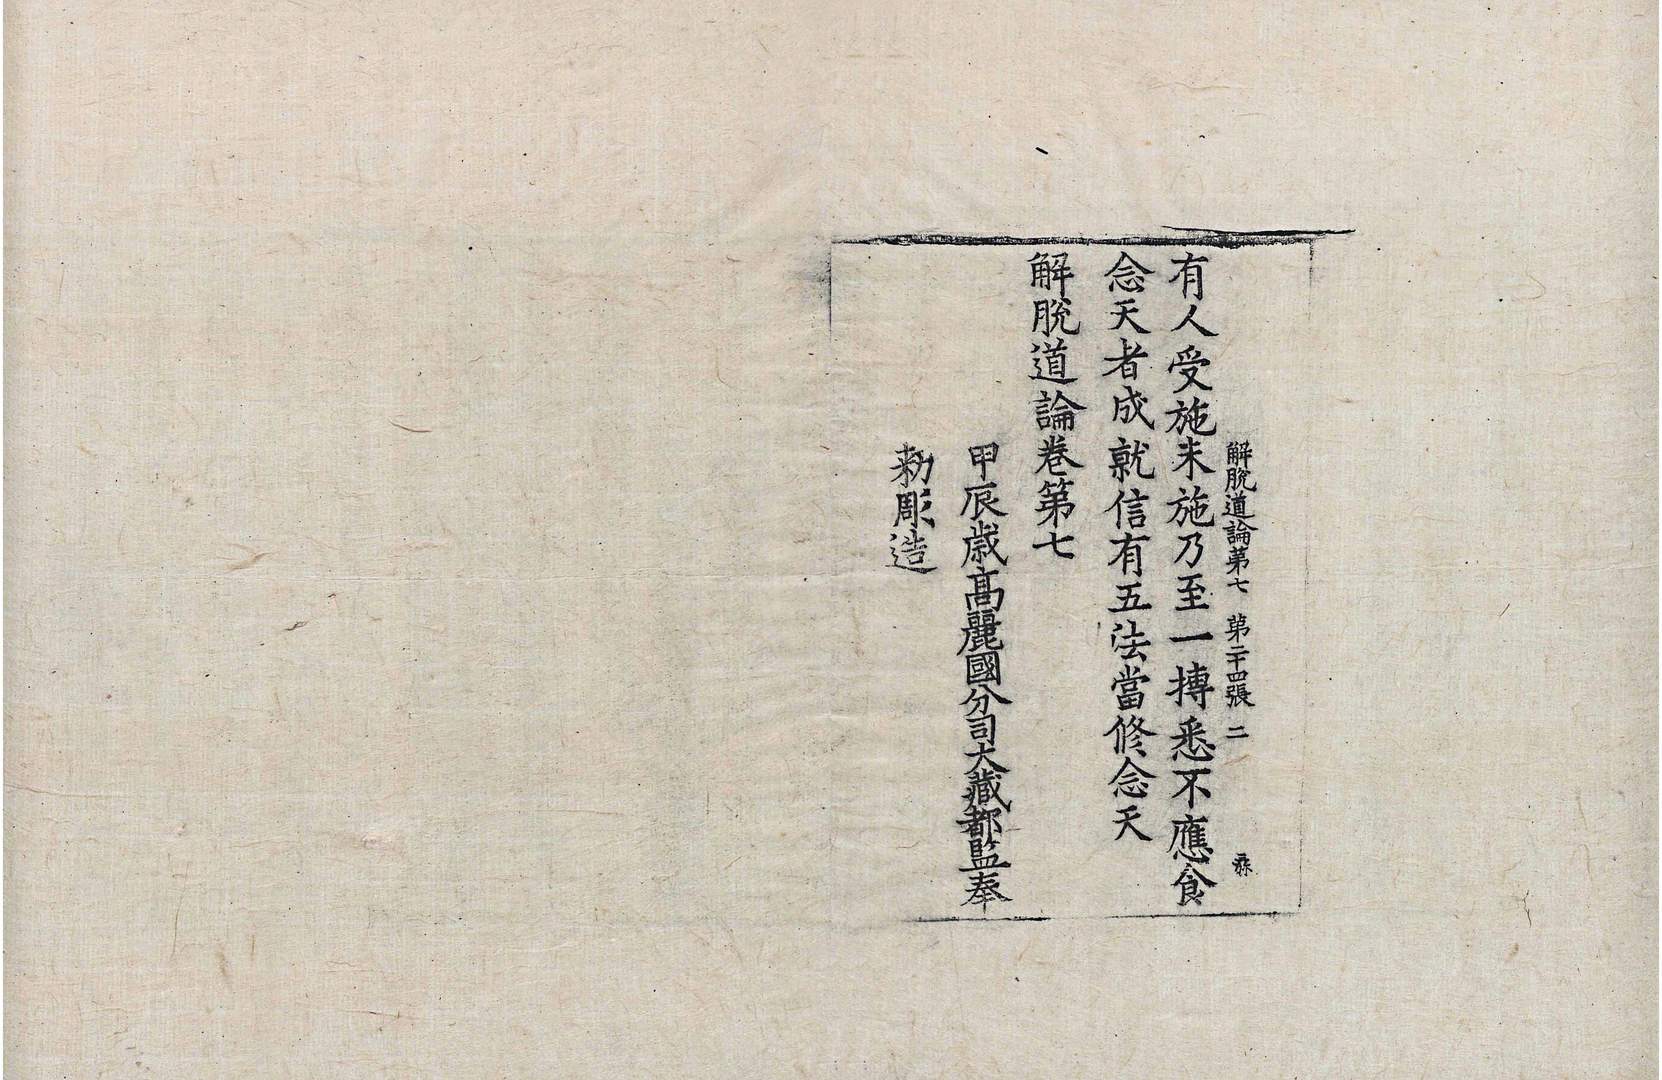 解脫道論第七 第二十四張 二
有人受施未施乃至一摶悉不應食
念天者成就信有五法當修念天
解脫道論卷第七
甲辰歲高麗國分司大藏都監奉
勅彫造